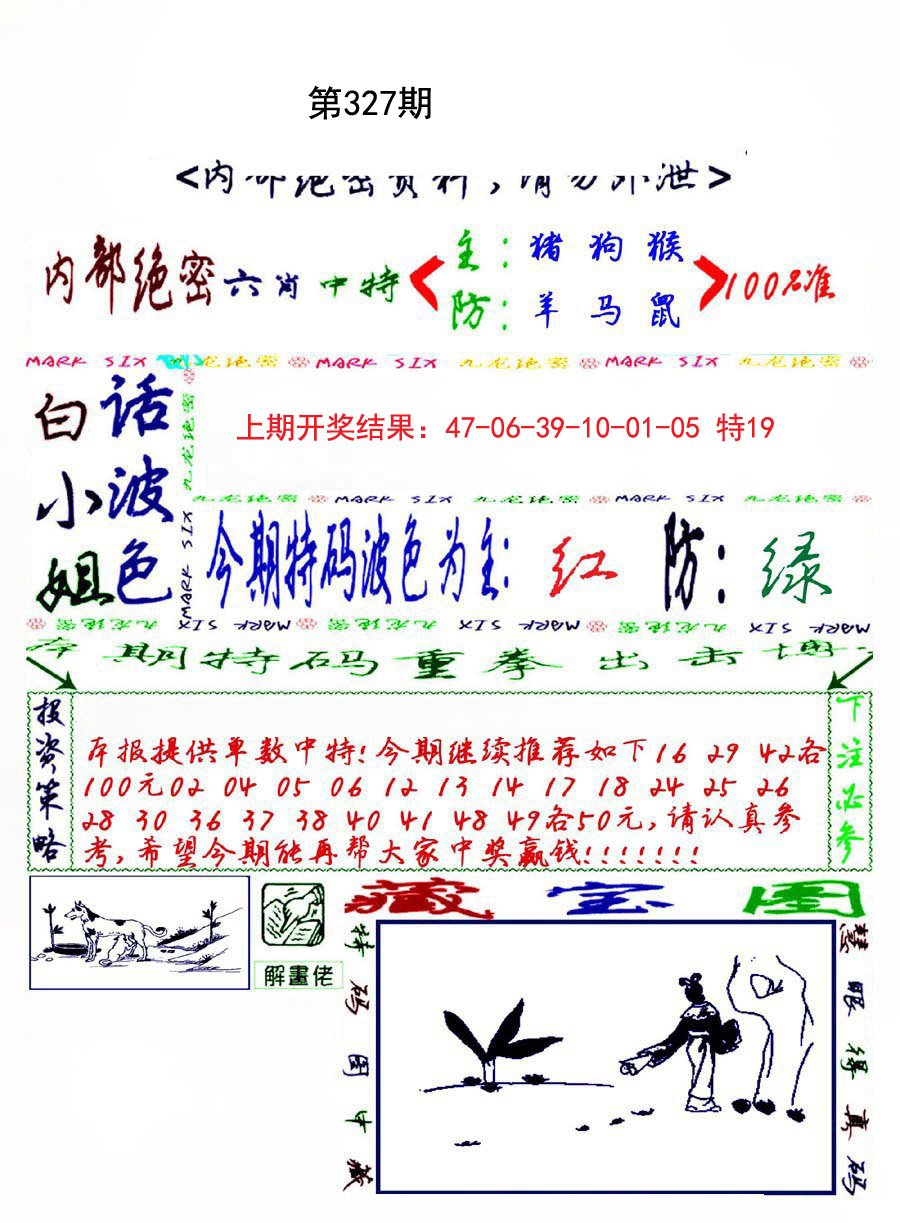 第327期
<内部绝密资料,请勿外泄>
内部绝密六肖中特
主:猪狗猴
防:羊马鼠
100%准
MARK SIX 九龙绝密 MARK SIX 九龙绝密 MARK SIX 九龙绝密
白话
小波
姐色
九龙绝密
MARK SIX
上期开奖结果:47-06-39-10-01-05 特19
九龙绝密 MARK SIX 九龙绝密 MARK SIX 九龙绝密
今期特码波色为主:红 防:绿
九龙绝密 MARK SIX 九龙绝密 MARK SIX 九龙绝密 MARK SIX
期特码重拳出击
投资策略
本报提供单数中特!今期继续推荐如下16 29 42各
100元02 04 05 06 12 13 14 17 18 24 25 26
28 30 36 37 38 40 41 48 49各50元,请认真参
考,希望今期能再帮大家中奖赢钱!!!!!!!
下注必参
藏宝图
解畫佬
特码图中藏
慧眼得真码